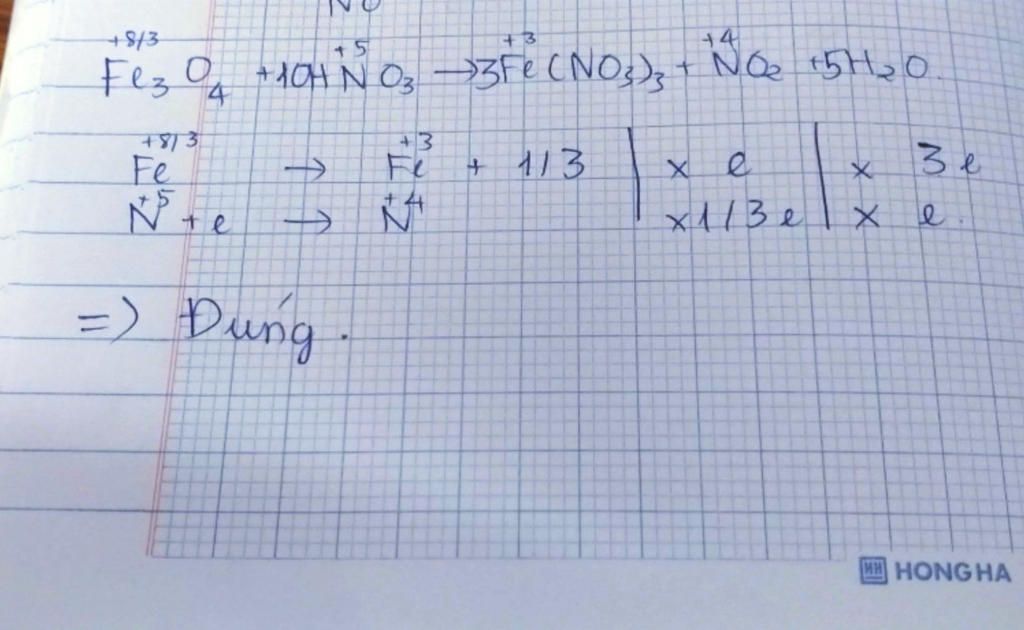 NO
+8/3 +5 +3 +4
Fe₃O₄ +10HNO₃ →3Fe(NO₃)₃ + NO₂ +5H₂O.
+8/3 +3
Fe → Fe + 1/3 | x e | x 3e
+5 +4
N + e → N | x1/3e | x e.
=) Đúng.
HH HONG HA